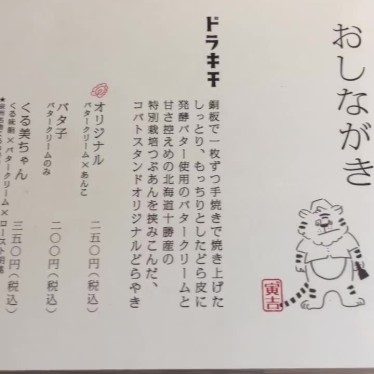 おしながき
寅吉
ドラキチ
銅板で一枚ずつ手焼きで焼き上げた
しっとり、もっちりとしたどら皮に
発酵バター使用のバタークリームと
甘さ控えめの北海道十勝産の
特別栽培つぶあんを挟みこんだ、
コバトスタンドオリジナルどらやき
オリジナル
バタークリーム×あんこ
二五〇円(税込)
バタ子
バタークリームのみ
二〇〇円(税込)
くる美ちゃん
くる味割×バタークリーム×ロースト胡桃
三五〇円(税込)